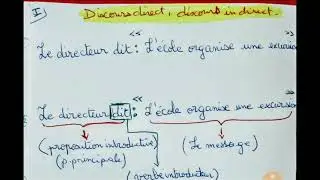 I) Discours direct, discours indirect.
« «
Le directeur dit : L'école organise une excursion
« «
Le directeur dit : L'école organise une excursion
(proposition introductive) (Le message)
(p. principale)
(verbe introducteur)